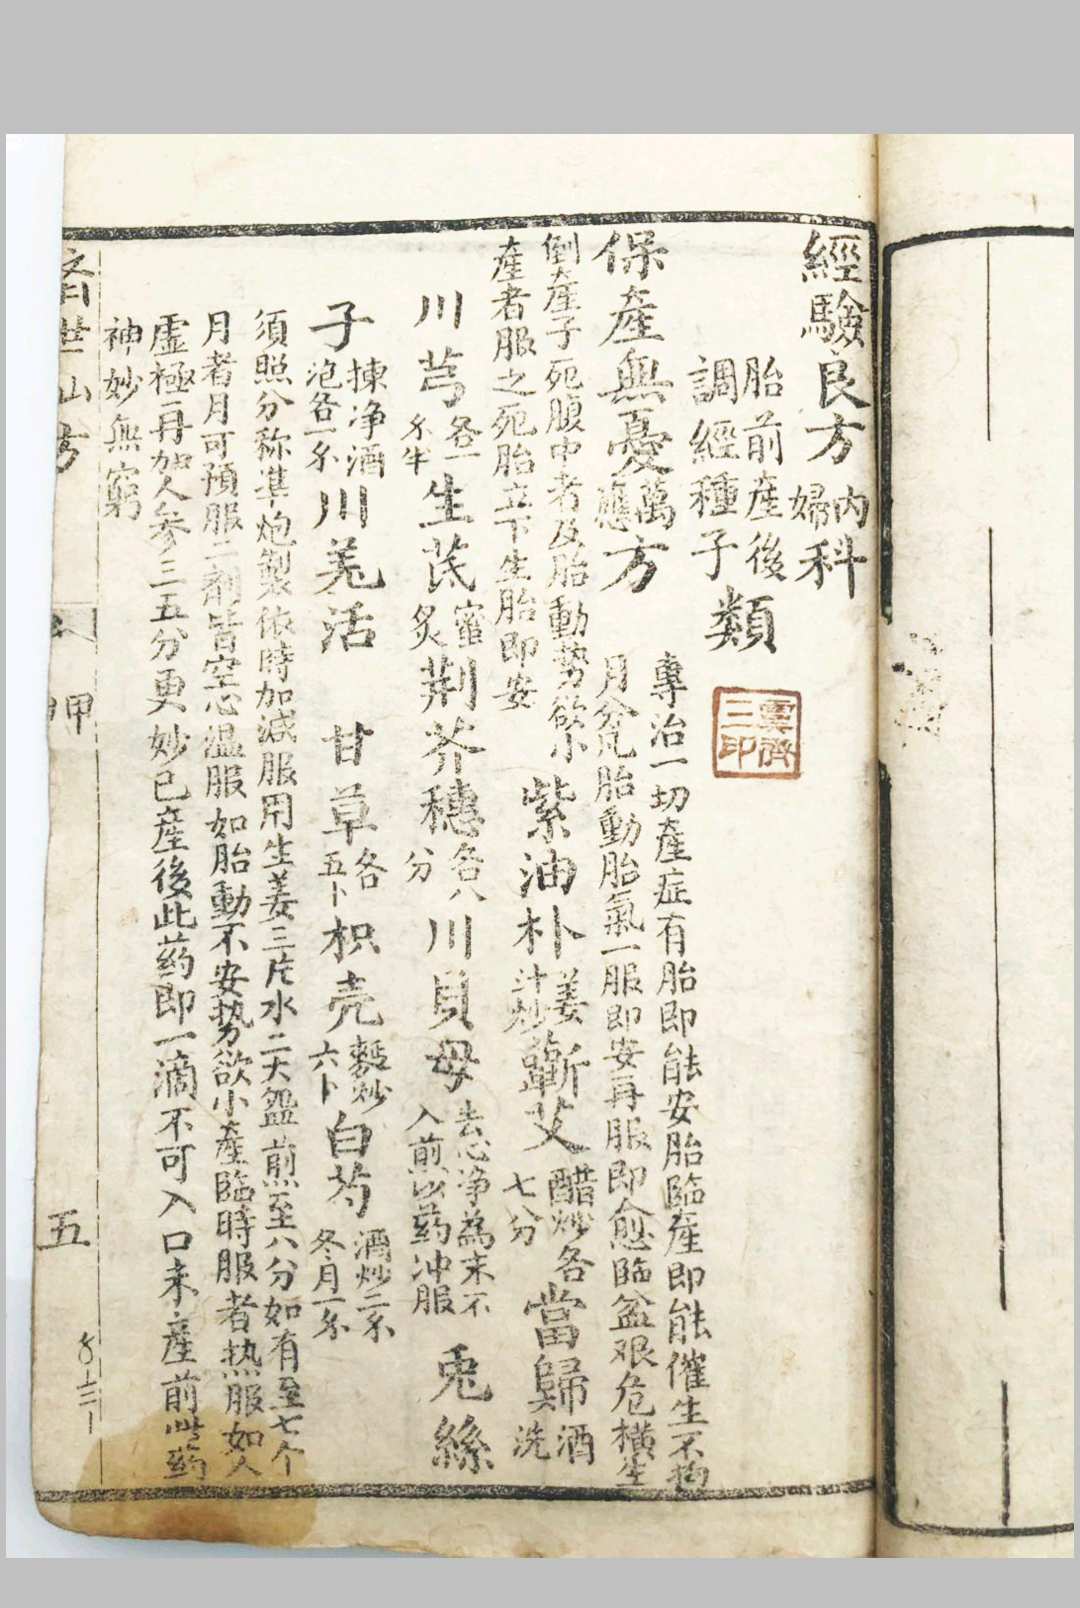 經驗良方 內婦科
胎前產後
調經種子 類
保產無憂萬應方
專治一切產症有胎即能安胎臨產即能催生不拘
月分凡胎動胎氣一服即安再服即愈臨盆艰危橫生
倒產子死腹中者及胎動势欲小
產者服之死胎立下生胎即安
紫油朴 姜汁炒 蘄艾 醋炒各七分 當歸 酒洗
川芎 各一錢半 生芪 蜜炙 荆芥穗 各八分 川貝母 去心净為末不入煎以药冲服 兎絲
子 揀净酒泡各一錢 川羌活 甘草 各五卜 枳壳 麩炒六卜 白芍 酒炒二錢冬月一錢
須照分称準炮製依時加減服用生姜三片水二大盌煎至八分如有至七个
月者月可預服二剤皆空心温服如胎動不安势欲小產臨時服者热服如人
虚極再加人参三五分更妙已產後此药即一滴不可入口未產前此药
神妙無窮
甲
五